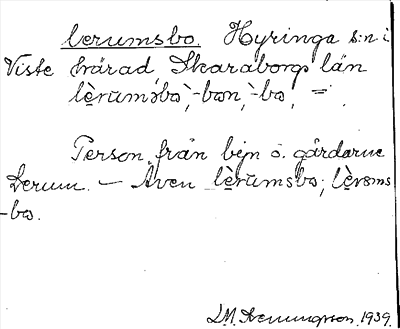 lerumsbo. Hyringa s:n i
Viste härad, Skaraborgs län
lè̱rumsbo, -bon, -bo, =.
Person från byn o. gårdarne
Lerum. — Även lè̱rumsbo; lè̱roms
-bo.
1939.